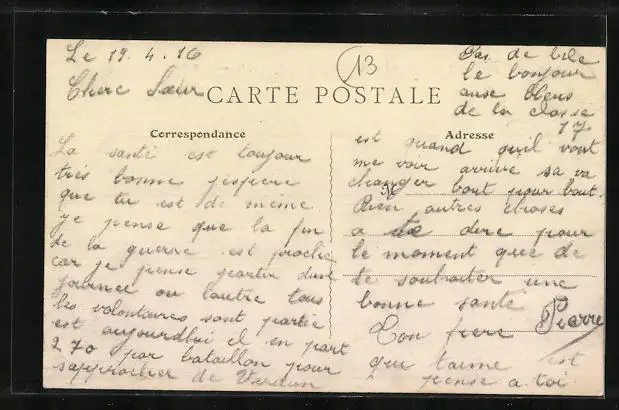 Le 19.4.16
Chere Sœur
13
Pas de bile
le bonjour
aux bleus
de la classe
17
CARTE POSTALE
Correspondance
La santé est toujour
très bonne jespere
que tu est de meme
je pense que la fin
de la guerre est proche
car je pense partir dune
journee ou lautre tous
les volontaires sont partie
est aujourdhui il en part
270 par bataillon pour
sapprocher de Verdun
Adresse
est quand quil vont
me voir arrive sa va
M
changer bout pour bout.
Rien autres choses
a te dire pour
le moment que de
te souhaiter une
bonne santé
Pierre
Ton frere
que taime est
pense a toi